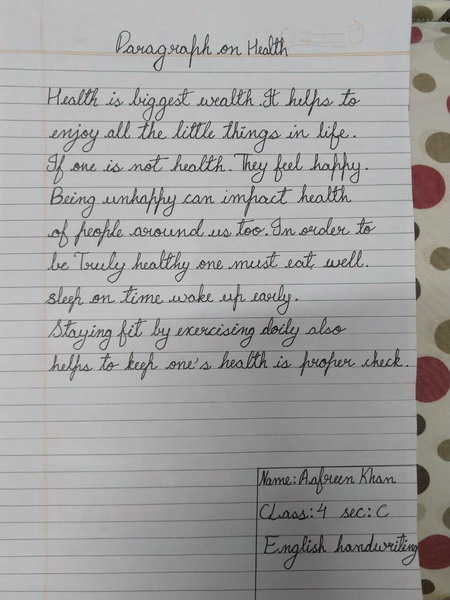 Paragraph on Health
Health is biggest wealth. It helps to
enjoy all the little things in life.
If one is not health. They feel happy.
Being unhappy can impact health
of people around us too. In order to
be Truly healthy one must eat well.
sleep on time wake up early.
Staying fit by exercising doily also
helps to keep one's health is proper check.
Name: Aafreen Khan
Class: 4 sec: C
English handwriting